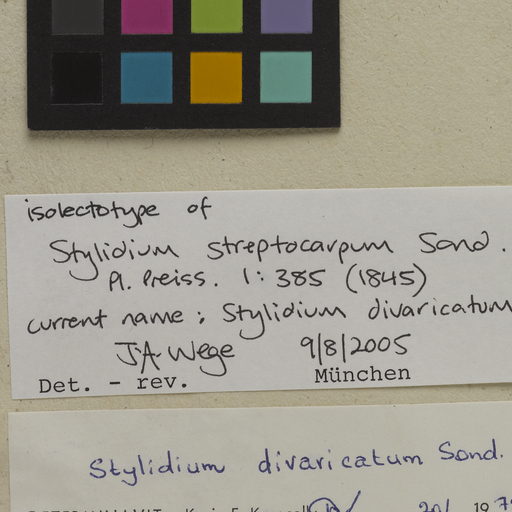 isolectotype of
Stylidium streptocarpum Sond.
Pl. Preiss. 1: 385 (1845)
current name: Stylidium divaricatum
J.A. Wege 9/8/2005
Det. - rev. München
Stylidium divaricatum Sond.